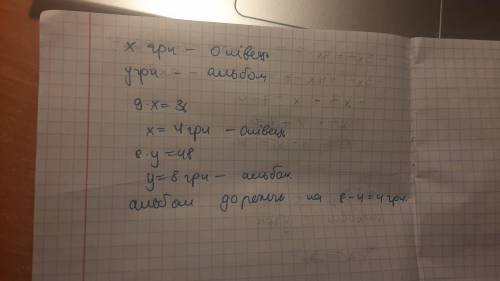 х грн – олівець
у грн - - альбом
9·х=36
х = 4 грн – олівець
8·у=48
у= 8 грн – альбом
альбом дорожчь на 8-4=4 грн.